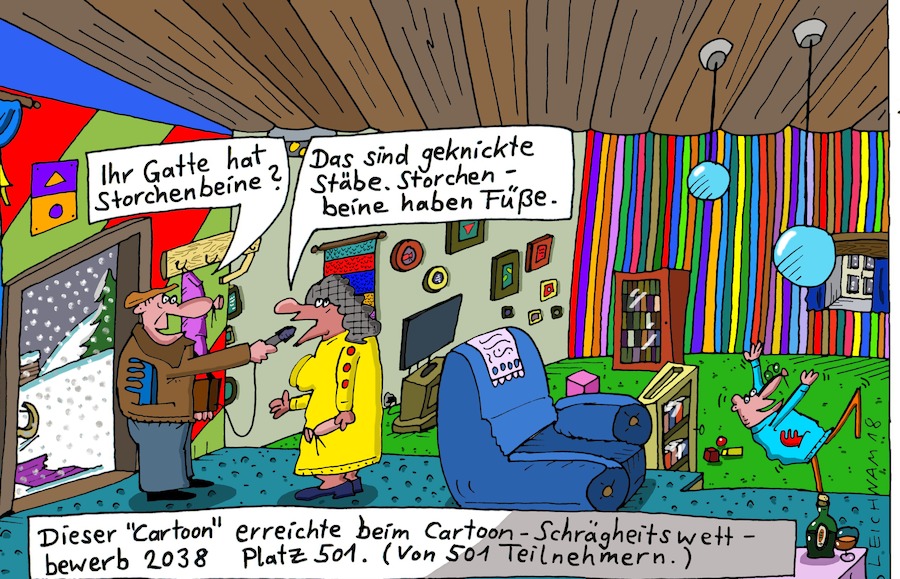 Ihr Gatte hat
Storchenbeine?
Das sind geknickte
Stäbe. Storchen-
beine haben Füße.
Dieser "Cartoon" erreichte beim Cartoon-Schrägheitswett-
bewerb 2038 Platz 501. (Von 501 Teilnehmern.)